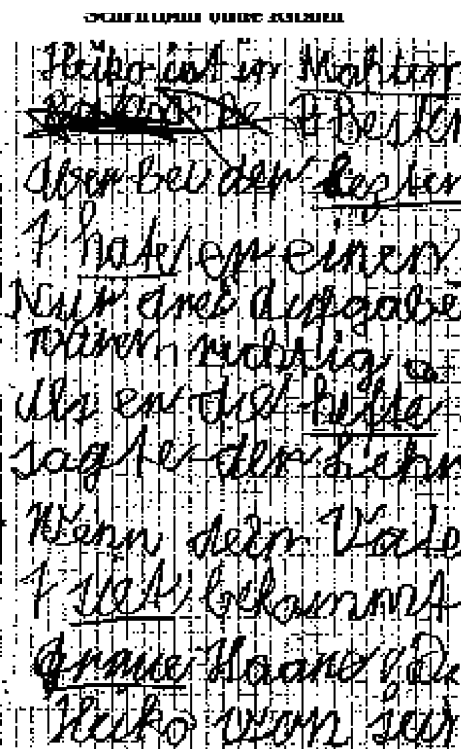 ohne
Heiko ist in
Beste
Aber bei der lezten
t hate er einen
Nur drei Aufgabe
waren richtig.
Als er die hefte
sagte der Lehr
Wenn dein Vate
t siet bekommt
Haare
Heiko von